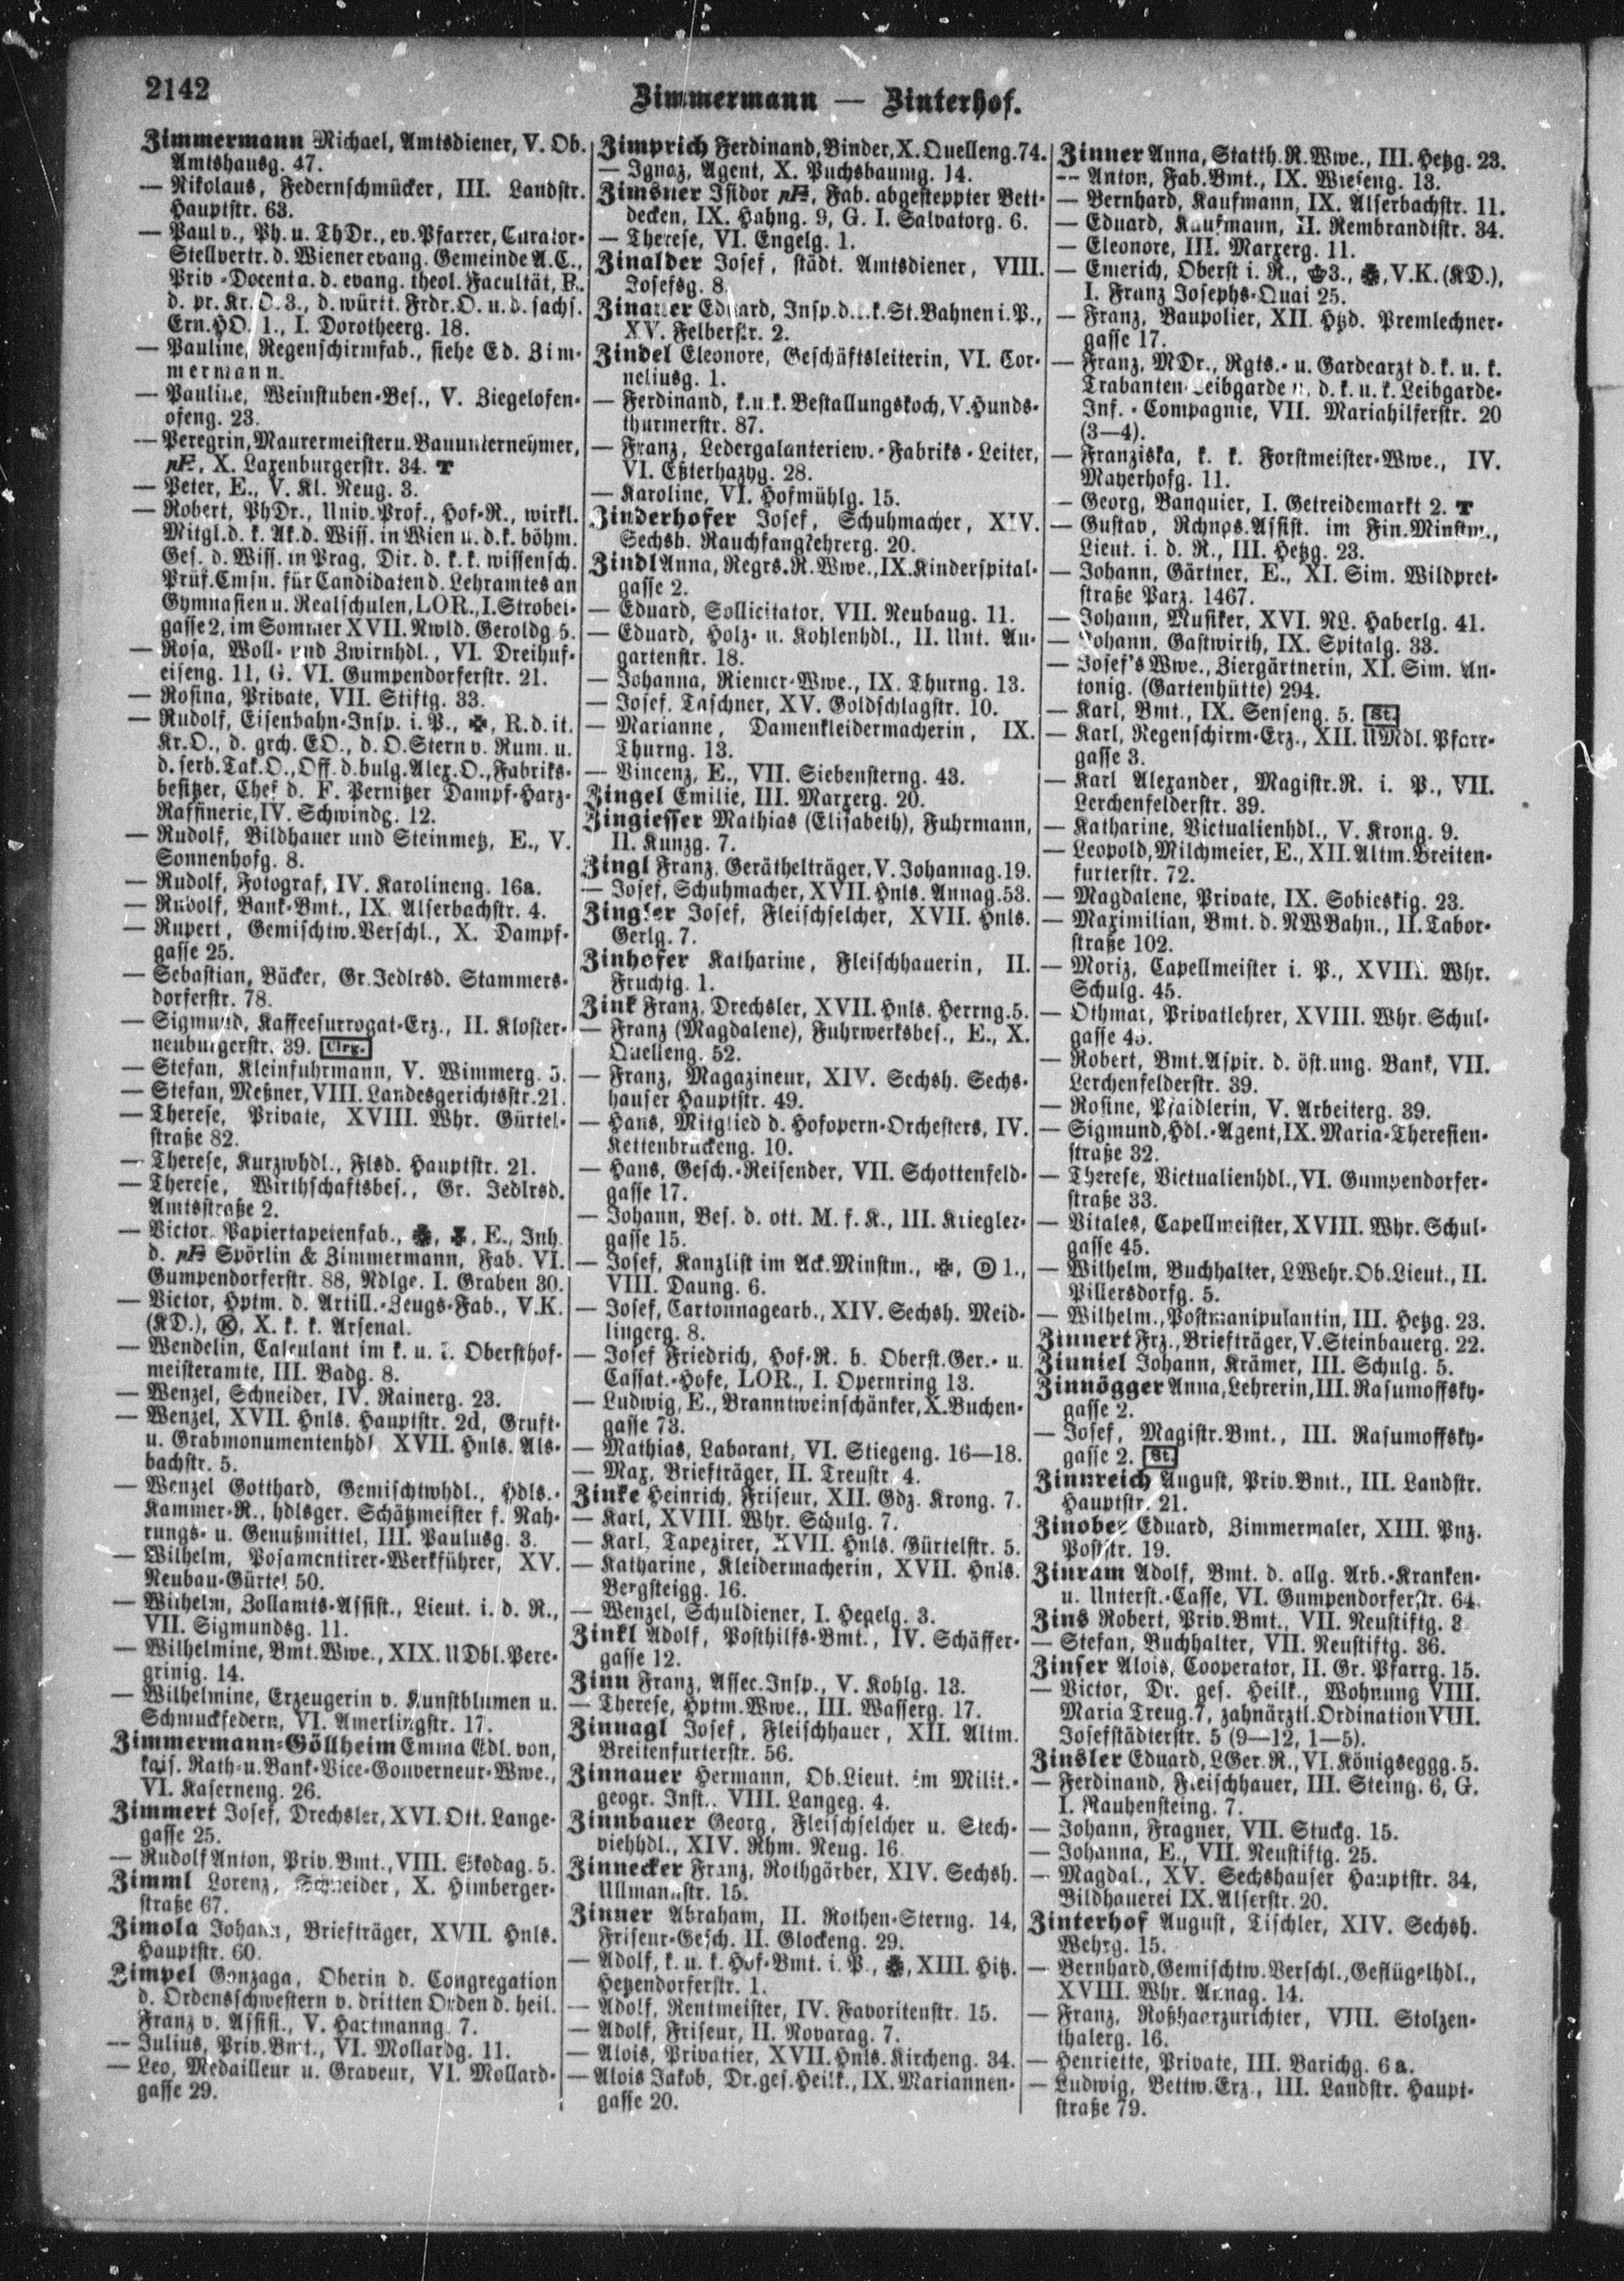 2142
Zimmermann — Zinterhof.
Zimmermann Michael, Amtsdiener, V. Ob.
Amtshausg. 47.
— Nikolaus, Federnschmücker, III. Landstr.
Hauptstr. 63.
— Paul v., Ph. u. ThDr., ev. Pfarrer, Curator-
Stellvertr. d. Wiener evang. Gemeinde A. C.,
Priv.-Docent a. d. evang. theol. Facultät, R.
d. pr. Kr.O. 3., d. württ. Frdr.O. u. d. sachs.
Ern.HO. 1., I. Dorotheerg. 18.
— Pauline, Regenschirmfab., siehe Ed. Zim-
mermann.
— Pauline, Weinstuben-Bes., V. Ziegelofen-
ofeng. 23.
— Peregrin, Maurermeister u. Bauunternehmer,
pF, X. Laxenburgerstr. 34. T
— Peter, E., V. Kl. Neug. 3.
— Robert, PhDr., Univ.Prof., Hof-R., wirkl.
Mitgl. d. k. Ak. d. Wiss. in Wien u. d. k. böhm.
Ges. d. Wiss. in Prag, Dir. d. k. k. wissensch.
Prüf.Cmsn. für Candidaten d. Lehramtes an
Gymnasien u. Realschulen, LOR., I. Strobel-
gasse 2, im Sommer XVII. Nwld. Geroldg. 5.
— Rosa, Woll- und Zwirnhdl., VI. Dreihuf-
eiseng. 11, G. VI. Gumpendorferstr. 21.
— Rosina, Private, VII. Stiftg. 33.
— Rudolf, Eisenbahn-Insp. i. P., ✠, R. d. it.
Kr.O., d. grch. EO., d. O. Stern v. Rum. u.
d. serb. Tak.O., Off. d. bulg. Alex.O., Fabriks-
besitzer, Chef d. F. Pernitzer Dampf-Harz-
Raffinerie, IV. Schwindg. 12.
— Rudolf, Bildhauer und Steinmetz, E., V.
Sonnenhofg. 8.
— Rudolf, Fotograf, IV. Karolineng. 16a.
— Rudolf, Bank-Bmt., IX. Alserbachstr. 4.
— Rupert, Gemischtw.Verschl., X. Dampf-
gasse 25.
— Sebastian, Bäcker, Gr. Jedlrsd. Stammers-
dorferstr. 78.
— Sigmund, Kaffeesurrogat-Erz., II. Kloster-
neuburgerstr. 39. Clrg.
— Stefan, Kleinfuhrmann, V. Wimmerg. 5.
— Stefan, Meßner, VIII. Landesgerichtsstr. 21.
— Therese, Private, XVIII. Whr. Gürtel-
straße 82.
— Therese, Kurzwhdl., Flsd. Hauptstr. 21.
— Therese, Wirthschaftsbes., Gr. Jedlrsd.
Amtsstraße 2.
— Victor, Papiertapetenfab., E., Inh.
d. pF Spörlin & Zimmermann, Fab. VI.
Gumpendorferstr. 88, Ndlge. I. Graben 30.
— Victor, Hptm. d. Artill.-Zeugs-Fab., V.K.
(KD.), Ⓚ, X. k. k. Arsenal.
— Wendelin, Calculant im k. u. k. Obersthof-
meisteramte, III. Badg. 8.
— Wenzel, Schneider, IV. Rainerg. 23.
— Wenzel, XVII. Hnls. Hauptstr. 2d, Gruft-
u. Grabmonumentenhdl. XVII. Hnls. Als-
bachstr. 5.
— Wenzel Gotthard, Gemischtwhdl., Hdls.-
Kammer-R., hdlsger. Schätzmeister f. Nah-
rungs- u. Genußmittel, III. Paulusg. 3.
— Wilhelm, Posamentirer-Werkführer, XV.
Neubau-Gürtel 50.
— Wilhelm, Zollamts-Assist., Lieut. i. d. R.,
VII. Sigmundsg. 11.
— Wilhelmine, Bmt.Wwe., XIX. UDbl. Pere-
grinig. 14.
— Wilhelmine, Erzeugerin v. Kunstblumen u.
Schmuckfedern, VI. Amerlingstr. 17.
Zimmermann-Göllheim Emma Edl. von,
kais. Rath- u. Bank-Vice-Gouverneur-Wwe.,
VI. Kaserneng. 26.
Zimmert Josef, Drechsler, XVI. Ott. Lange-
gasse 25.
— Rudolf Anton, Priv.Bmt., VIII. Skodag. 5.
Zimml Lorenz, Schneider, X. Himberger-
straße 67.
Zimola Johann, Briefträger, XVII. Hnls.
Hauptstr. 60.
Zimpel Gonzaga, Oberin d. Congregation
d. Ordensschwestern v. dritten Orden d. heil.
Franz v. Assisi., V. Hartmanng. 7.
— Julius, Priv.Bmt., VI. Mollardg. 11.
— Leo, Medailleur u. Graveur, VI. Mollard-
gasse 29.
Zimprich Ferdinand, Binder, X. Quelleng. 74.
— Ignaz, Agent, X. Puchsbaumg. 14.
Zimsner Isidor pF, Fab. abgesteppter Bett-
decken, IX. Hahng. 9, G. I. Salvatorg. 6.
— Therese, VI. Engelg. 1.
Zinalder Josef, städt. Amtsdiener, VIII.
Josefsg. 8.
Zinauer Eduard, Insp. d. k. k. St.Bahnen i. P.,
XV. Felberstr. 2.
Zindel Eleonore, Geschäftsleiterin, VI. Cor-
neliusg. 1.
— Ferdinand, k. u. k. Bestallungskoch, V. Hunds-
thurmerstr. 87.
— Franz, Ledergalanteriew.-Fabriks-Leiter,
VI. Eßterhazyg. 28.
— Karoline, VI. Hofmühlg. 15.
Zinderhofer Josef, Schuhmacher, XIV.
Sechsh. Rauchfangkehrerg. 20.
Zindl Anna, Regrs.R.Wwe., IX. Kinderspital-
gasse 2.
— Eduard, Sollicitator, VII. Neubaug. 11.
— Eduard, Holz- u. Kohlenhdl., II. Unt. Au-
gartenstr. 18.
— Johanna, Riemer-Wwe., IX. Thurng. 13.
— Josef, Taschner, XV. Goldschlagstr. 10.
— Marianne, Damenkleidermacherin, IX.
Thurng. 13.
— Vincenz, E., VII. Siebensterng. 43.
Zingel Emilie, III. Marxerg. 20.
Zingiesser Mathias (Elisabeth), Fuhrmann,
II. Kunzg. 7.
Zingl Franz, Geräthelträger, V. Johannag. 19.
— Josef, Schuhmacher, XVII. Hnls. Annag. 53.
Zingler Josef, Fleischselcher, XVII. Hnls.
Gerlg. 7.
Zinhofer Katharine, Fleischhauerin, II.
Fruchtg. 1.
Zink Franz, Drechsler, XVII. Hnls. Herrng. 5.
— Franz (Magdalene), Fuhrwerksbes., E., X.
Quelleng. 52.
— Franz, Magazineur, XIV. Sechsh. Sechs-
hauser Hauptstr. 49.
— Hans, Mitglied d. Hofopern-Orchesters, IV.
Kettenbrückeng. 10.
— Hans, Gesch.-Reisender, VII. Schottenfeld-
gasse 17.
— Johann, Bes. d. ott. M. f. K., III. Kriegler-
gasse 15.
— Josef, Kanzlist im Ack.Minstm., ✠, Ⓓ 1.,
VIII. Daung. 6.
— Josef, Cartonnagearb., XIV. Sechsh. Meid-
lingerg. 8.
— Josef Friedrich, Hof-R. b. Oberst.Ger.- u.
Cassat.-Hofe, LOR., I. Opernring 13.
— Ludwig, E., Branntweinschänker, X. Buchen-
gasse 73.
— Mathias, Laborant, VI. Stiegeng. 16—18.
— Max, Briefträger, II. Treustr. 4.
Zinke Heinrich, Friseur, XII. Gdz. Krong. 7.
— Karl, XVIII. Whr. Schulg. 7.
— Karl, Tapezirer, XVII. Hnls. Gürtelstr. 5.
— Katharine, Kleidermacherin, XVII. Hnls.
Bergsteigg. 16.
— Wenzel, Schuldiener, I. Hegelg. 3.
Zinkl Adolf, Posthilfs-Bmt., IV. Schäffer-
gasse 12.
Zinn Franz, Assec.Insp., V. Kohlg. 13.
— Therese, Hptm.Wwe., III. Wasserg. 17.
Zinnagl Josef, Fleischhauer, XII. Altm.
Breitenfurterstr. 56.
Zinnauer Hermann, Ob.Lieut. im Milit.-
geogr. Inst., VIII. Langeg. 4.
Zinnbauer Georg, Fleischselcher u. Stech-
viehhdl., XIV. Rhm. Neug. 16.
Zinnecker Franz, Rothgärber, XIV. Sechsh.
Ullmannstr. 15.
Zinner Abraham, II. Rothen-Sterng. 14,
Friseur-Gesch. II. Glockeng. 29.
— Adolf, k. u. k. Hof-Bmt. i. P., XIII. Hitz.
Hetzendorferstr. 1.
— Adolf, Rentmeister, IV. Favoritenstr. 15.
— Adolf, Friseur, II. Novarag. 7.
— Alois, Privatier, XVII. Hnls. Kircheng. 34.
— Alois Jakob, Dr. ges. Heilk., IX. Mariannen-
gasse 20.
Zinner Anna, Statth.R.Wwe., III. Hetzg. 23.
— Anton, Fab.Bmt., IX. Wieseng. 13.
— Bernhard, Kaufmann, IX. Alserbachstr. 11.
— Eduard, Kaufmann, II. Rembrandtstr. 34.
— Eleonore, III. Marxerg. 11.
— Emerich, Oberst i. R., 3., V.K. (KD.),
I. Franz Josephs-Quai 25.
— Franz, Baupolier, XII. Htzd. Premlechner-
gasse 17.
— Franz, MDr., Rgts.- u. Gardearzt d. k. u. k.
Trabanten-Leibgarde u. d. k. u. k. Leibgarde-
Inf.-Compagnie, VII. Mariahilferstr. 20
(3—4).
— Franziska, k. k. Forstmeister-Wwe., IV.
Mayerhofg. 11.
— Georg, Banquier, I. Getreidemarkt 2. T
— Gustav, Rchngs.Assist. im Fin.Minstm.,
Lieut. i. d. R., III. Hetzg. 23.
— Johann, Gärtner, E., XI. Sim. Wildpret-
straße Parz. 1467.
— Johann, Musiker, XVI. NL. Haberlg. 41.
— Johann, Gastwirth, IX. Spitalg. 33.
— Josef's Wwe., Ziergärtnerin, XI. Sim. An-
tonig. (Gartenhütte) 294.
— Karl, Bmt., IX. Senseng. 5. St.
— Karl, Regenschirm-Erz., XII. UMdl. Pfarr-
gasse 3.
— Karl Alexander, Magistr.R. i. P., VII.
Lerchenfelderstr. 39.
— Katharine, Victualienhdl., V. Krong. 9.
— Leopold, Milchmeier, E., XII. Altm. Breiten-
furterstr. 72.
— Magdalene, Private, IX. Sobieskig. 23.
— Maximilian, Bmt. d. NWBahn., II. Tabor-
straße 102.
— Moriz, Capellmeister i. P., XVIII. Whr.
Schulg. 45.
— Othmar, Privatlehrer, XVIII. Whr. Schul-
gasse 45.
— Robert, Bmt.Aspir. d. öst.ung. Bank, VII.
Lerchenfelderstr. 39.
— Rosine, Pfaidlerin, V. Arbeiterg. 39.
— Sigmund, Hdl.-Agent, IX. Maria-Theresien-
straße 32.
— Therese, Victualienhdl., VI. Gumpendorfer-
straße 33.
— Vitales, Capellmeister, XVIII. Whr. Schul-
gasse 45.
— Wilhelm, Buchhalter, LWehr.Ob.Lieut., II.
Pillersdorfg. 5.
— Wilhelm., Postmanipulantin, III. Hetzg. 23.
Zinnert Frz., Briefträger, V. Steinbauerg. 22.
Zinniel Johann, Krämer, III. Schulg. 5.
Zinnögger Anna, Lehrerin, III. Rasumoffsky-
gasse 2.
— Josef, Magistr.Bmt., III. Rasumoffsky-
gasse 2. St.
Zinnreich August, Priv.Bmt., III. Landstr.
Hauptstr. 21.
Zinober Eduard, Zimmermaler, XIII. Pnz.
Poststr. 19.
Zinram Adolf, Bmt. d. allg. Arb.-Kranken-
u. Unterst.-Casse, VI. Gumpendorferstr. 64.
Zins Robert, Priv.Bmt., VII. Neustiftg. 3.
— Stefan, Buchhalter, VII. Neustiftg. 36.
Zinser Alois, Cooperator, II. Gr. Pfarrg. 15.
— Victor, Dr. ges. Heilk., Wohnung VIII.
Maria Treug. 7, zahnärztl. Ordination VIII.
Josefstädterstr. 5 (9—12, 1—5).
Zinsler Eduard, LGer.R., VI. Königseggg. 5.
— Ferdinand, Fleischhauer, III. Steing. 6, G.
I. Rauhensteing. 7.
— Johann, Fragner, VII. Stuckg. 15.
— Johanna, E., VII. Neustiftg. 25.
— Magdal., XV. Sechshauser Hauptstr. 34,
Bildhauerei IX. Alserstr. 20.
Zinterhof August, Tischler, XIV. Sechsh.
Wehrg. 15.
— Bernhard, Gemischtw.Verschl., Geflügelhdl.,
XVIII. Whr. Annag. 14.
— Franz, Roßhaarzurichter, VIII. Stolzen-
thalerg. 16.
— Henriette, Private, III. Barichg. 6a.
— Ludwig, Bettw.Erz., III. Landstr. Haupt-
straße 79.